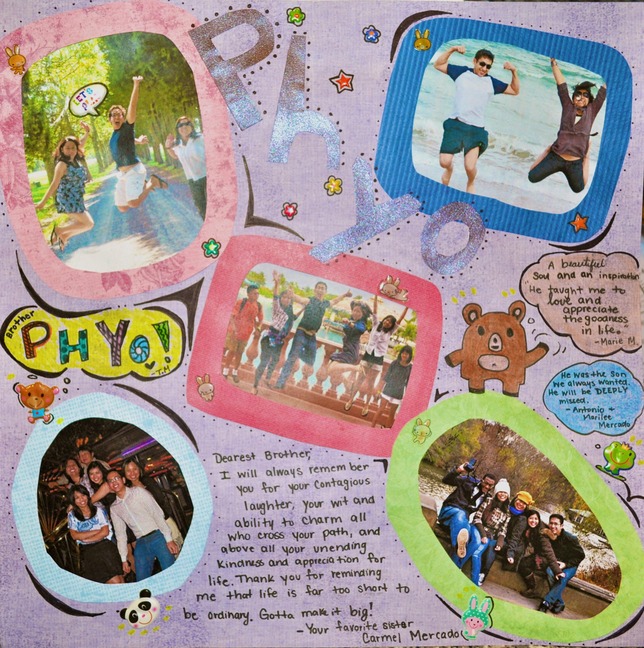 Phyo
LET'S
A beautiful
Soul and an inspiration
"He taught me to
love and
appreciate
the goodness
in life."
-Marie M.
Brother
PHYo!
-T.M
He was the Son
We always wanted.
He will be DEEPLY
missed.
- Antonio +
Marilee
Mercado
Dearest Brother,
I will always remember
you for your contagious
laughter, your wit and
ability to charm all
who cross your path, and
above all your unending
Kindness and appreciation for
life. Thank you for reminding
me that life is far too short to
be ordinary. Gotta make it big!
-Your favorite sister
Carmel Mercado